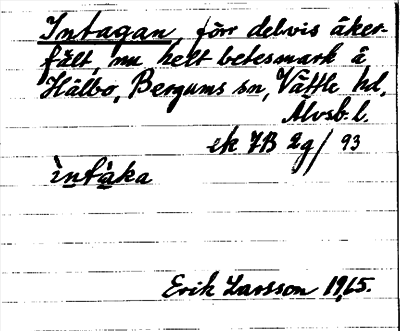 Intagan, förr delvis åker-
fält, nu helt betesmark å
Hålbo, Bergums sn, Vättle hd,
Älvsb. l.
ek JB 2g/93
ìntàka
Erik Larsson 1965.